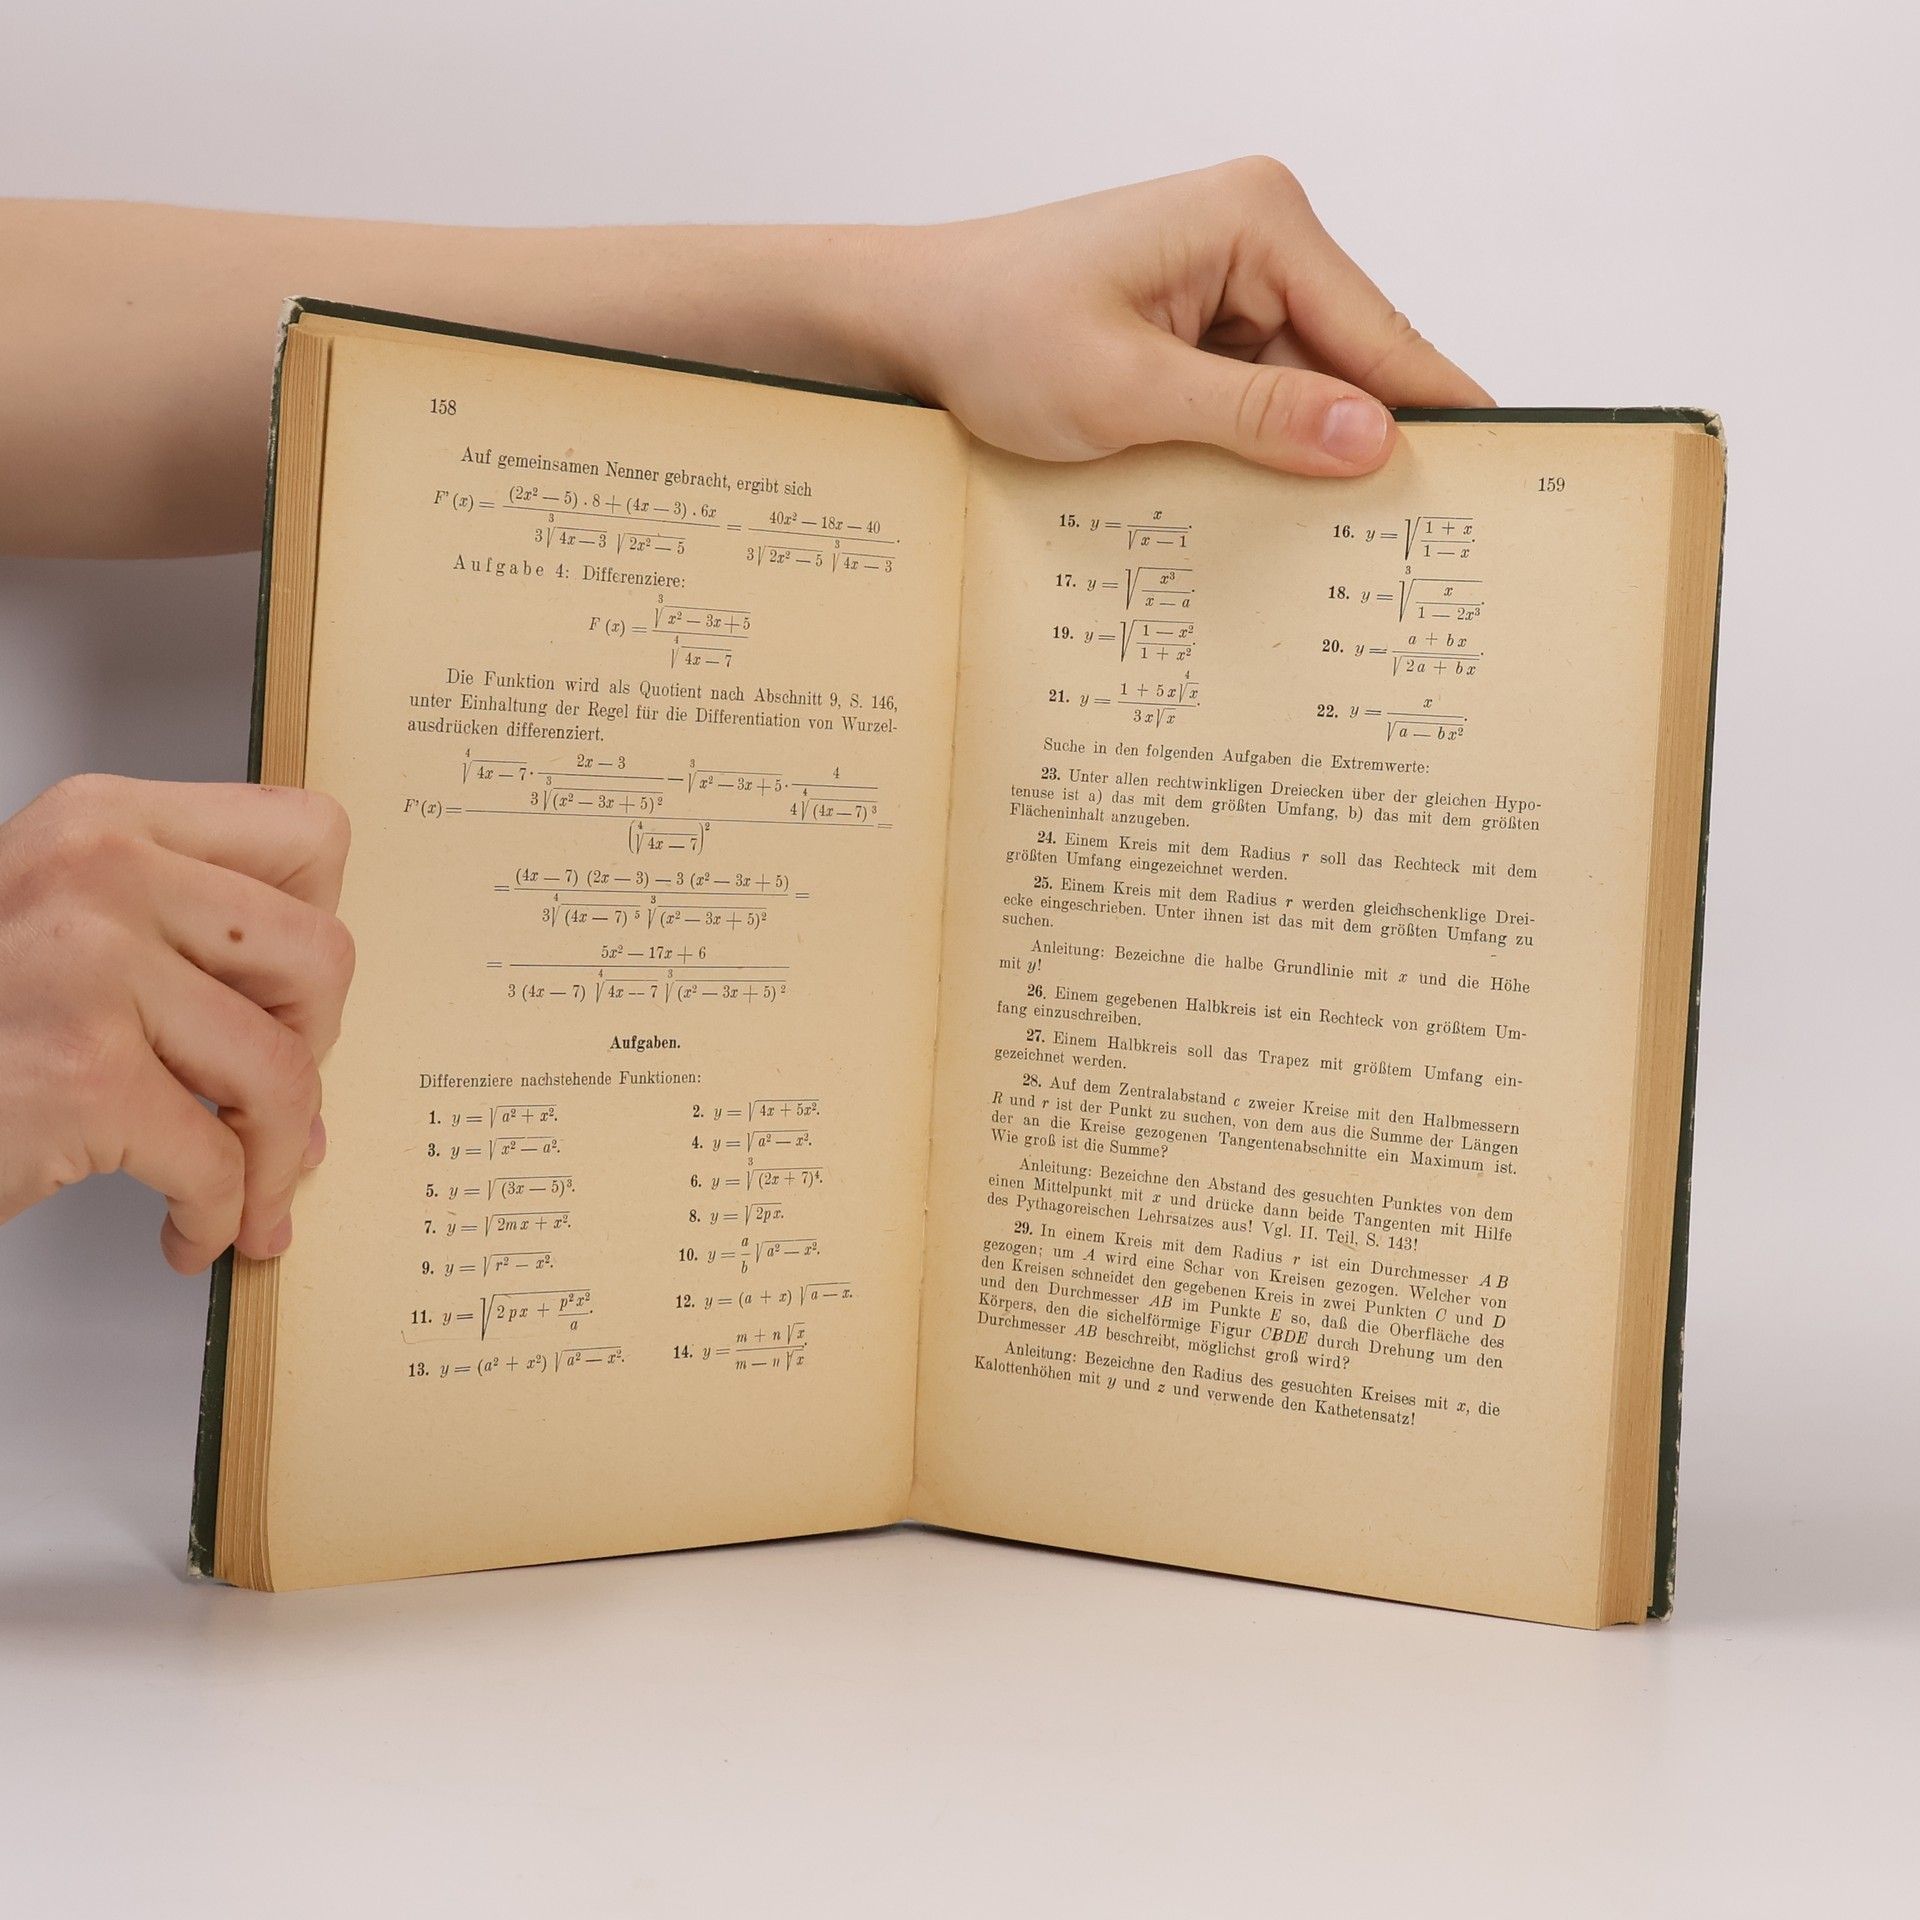 158
Auf gemeinsamen Nenner gebracht, ergibt sich
F'(x) = ((2x² — 5) . 8 + (4x — 3) . 6x) / (3 ∛(4x — 3) √(2x² — 5)) = (40x² — 18x — 40) / (3 √(2x² — 5) ∛(4x — 3)).
Aufgabe 4: Differenziere:
F (x) = ∛(x² — 3x + 5) / ∜(4x — 7)
Die Funktion wird als Quotient nach Abschnitt 9, S. 146,
unter Einhaltung der Regel für die Differentiation von Wurzel-
ausdrücken differenziert.
F'(x) = (∜(4x — 7) · (2x — 3) / (3 ∛(x² — 3x + 5)²) — ∛(x² — 3x + 5) · 4 / (4 ∜(4x — 7)³)) / (∜(4x — 7))² =
= ((4x — 7) (2x — 3) — 3 (x² — 3x + 5)) / (3 ∜(4x — 7)⁵ ∛(x² — 3x + 5)²) =
= (5x² — 17x + 6) / (3 (4x — 7) ∜(4x — 7) ∛(x² — 3x + 5)²)
Aufgaben.
Differenziere nachstehende Funktionen:
1. y = √(a² + x²). 2. y = √(4x + 5x²).
3. y = √(x² — a²). 4. y = √(a² — x²).
5. y = √(3x — 5)³. 6. y = ∛(2x + 7)⁴.
7. y = √(2mx + x²). 8. y = √(2px).
9. y = √(r² — x²). 10. y = a/b √(a² — x²).
11. y = √(2px + p²x²/a). 12. y = (a + x) √(a — x).
13. y = (a² + x²) √(a² — x²). 14. y = (m + n √x) / (m — n √x).
159
15. y = x / √(x — 1). 16. y = √((1 + x) / (1 — x)).
17. y = √(x³ / (x — a)). 18. y = ∛(x / (1 — 2x³)).
19. y = √((1 — x²) / (1 + x²)). 20. y = (a + bx) / √(2a + bx).
21. y = (1 + 5x ∜x) / (3x √x). 22. y = x / √(a — bx²).
Suche in den folgenden Aufgaben die Extremwerte:
23. Unter allen rechtwinkligen Dreiecken über der gleichen Hypo-
tenuse ist a) das mit dem größten Umfang, b) das mit dem größten
Flächeninhalt anzugeben.
24. Einem Kreis mit dem Radius r soll das Rechteck mit dem
größten Umfang eingezeichnet werden.
25. Einem Kreis mit dem Radius r werden gleichschenklige Drei-
ecke eingeschrieben. Unter ihnen ist das mit dem größten Umfang zu
suchen.
Anleitung: Bezeichne die halbe Grundlinie mit x und die Höhe
mit y!
26. Einem gegebenen Halbkreis ist ein Rechteck von größtem Um-
fang einzuschreiben.
27. Einem Halbkreis soll das Trapez mit größtem Umfang ein-
gezeichnet werden.
28. Auf dem Zentralabstand c zweier Kreise mit den Halbmessern
R und r ist der Punkt zu suchen, von dem aus die Summe der Längen
der an die Kreise gezogenen Tangentenabschnitte ein Maximum ist.
Wie groß ist die Summe?
Anleitung: Bezeichne den Abstand des gesuchten Punktes von dem
einen Mittelpunkt mit x und drücke dann beide Tangenten mit Hilfe
des Pythagoreischen Lehrsatzes aus! Vgl. II. Teil, S. 143!
29. In einem Kreis mit dem Radius r ist ein Durchmesser A B
gezogen; um A wird eine Schar von Kreisen gezogen. Welcher von
den Kreisen schneidet den gegebenen Kreis in zwei Punkten C und D
und den Durchmesser AB im Punkte E so, daß die Oberfläche des
Körpers, den die sichelförmige Figur CBDE durch Drehung um den
Durchmesser AB beschreibt, möglichst groß wird?
Anleitung: Bezeichne den Radius des gesuchten Kreises mit x, die
Kalottenhöhen mit y und z und verwende den Kathetensatz!